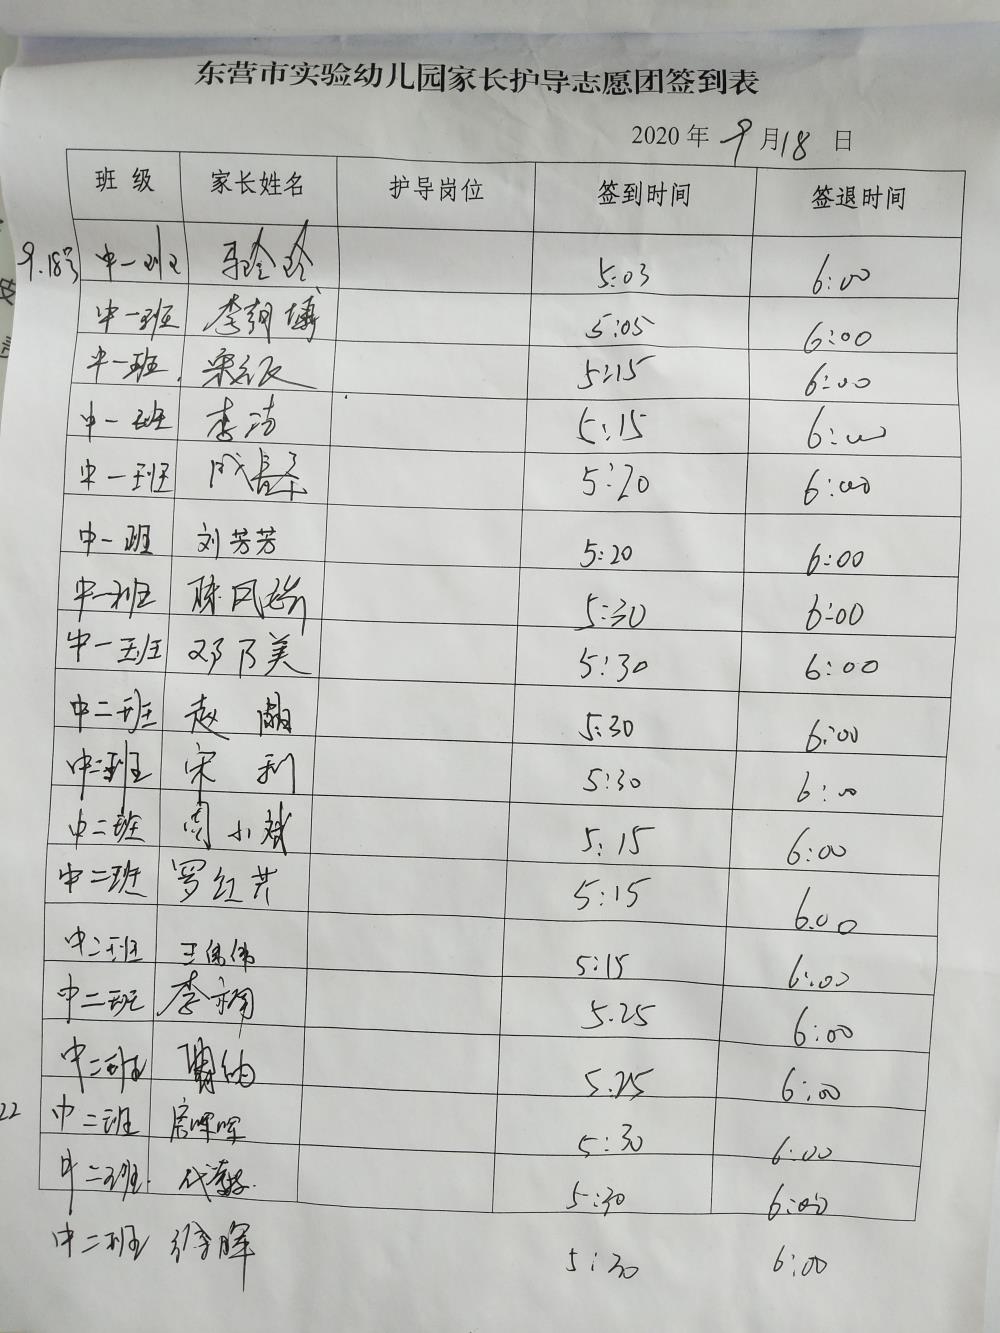 东营市实验幼儿园家长护导志愿团签到表
2020 年 9 月 18 日
班 级 家长姓名 护导岗位 签到时间 签退时间
9.18号 中一班 5:03 6:00
中一班 李朝博 5:05 6:00
中一班 5:15 6:00
中一班 李洁 5:15 6:00
中一班 5:20 6:00
中一班 刘芳芳 5:20 6:00
中一班 5:30 6:00
中一班 邓乃美 5:30 6:00
中二班 赵 5:30 6:00
中二班 宋 利 5:30 6:00
中二班 周小斌 5:15 6:00
中二班 罗红芹 5:15 6:00
中二班 王伟伟 5:15 6:00
中二班 李 5.25 6:00
中二班 5.25 6:00
22 中二班 晖晖 5:30 6:00
中二班 代 5:30 6:00
中二班 徐晖 5:30 6:00